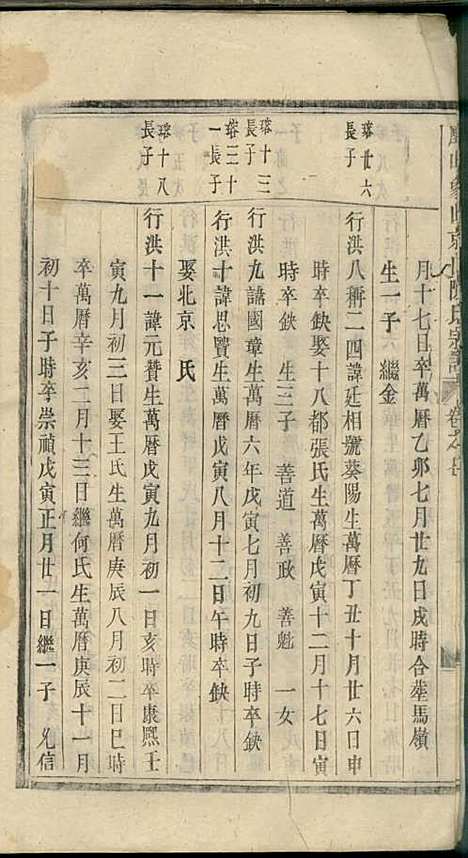 陳氏宗譜
月十七日卒萬曆乙卯七月廿九日戌時合塟馬嶺
生一子 繼金
瑹廿六長子
行洪八稱二四諱廷相號葵陽生萬曆丁丑十月廿六日申
時卒缺娶十八都張氏生萬曆戊寅十二月十七日寅
時卒鈌 生三子 善道 善政 善魁 一女
十三長子
行洪九諱國章生萬曆六年戊寅七月初九日子時卒鈌
三十一長子
行洪十諱思賢生萬曆戊寅八月十二日午時卒鈌
娶北京 氏
十八長子
行洪十一諱元贊生萬曆戊寅九月初一日亥時卒康熈壬
寅九月初三日娶王氏生萬曆庚辰八月初二日巳時
卒萬曆辛亥二月十三日繼何氏生萬曆庚辰十一月
初十日子時卒崇禎戊寅正月廿一日繼一子 允信